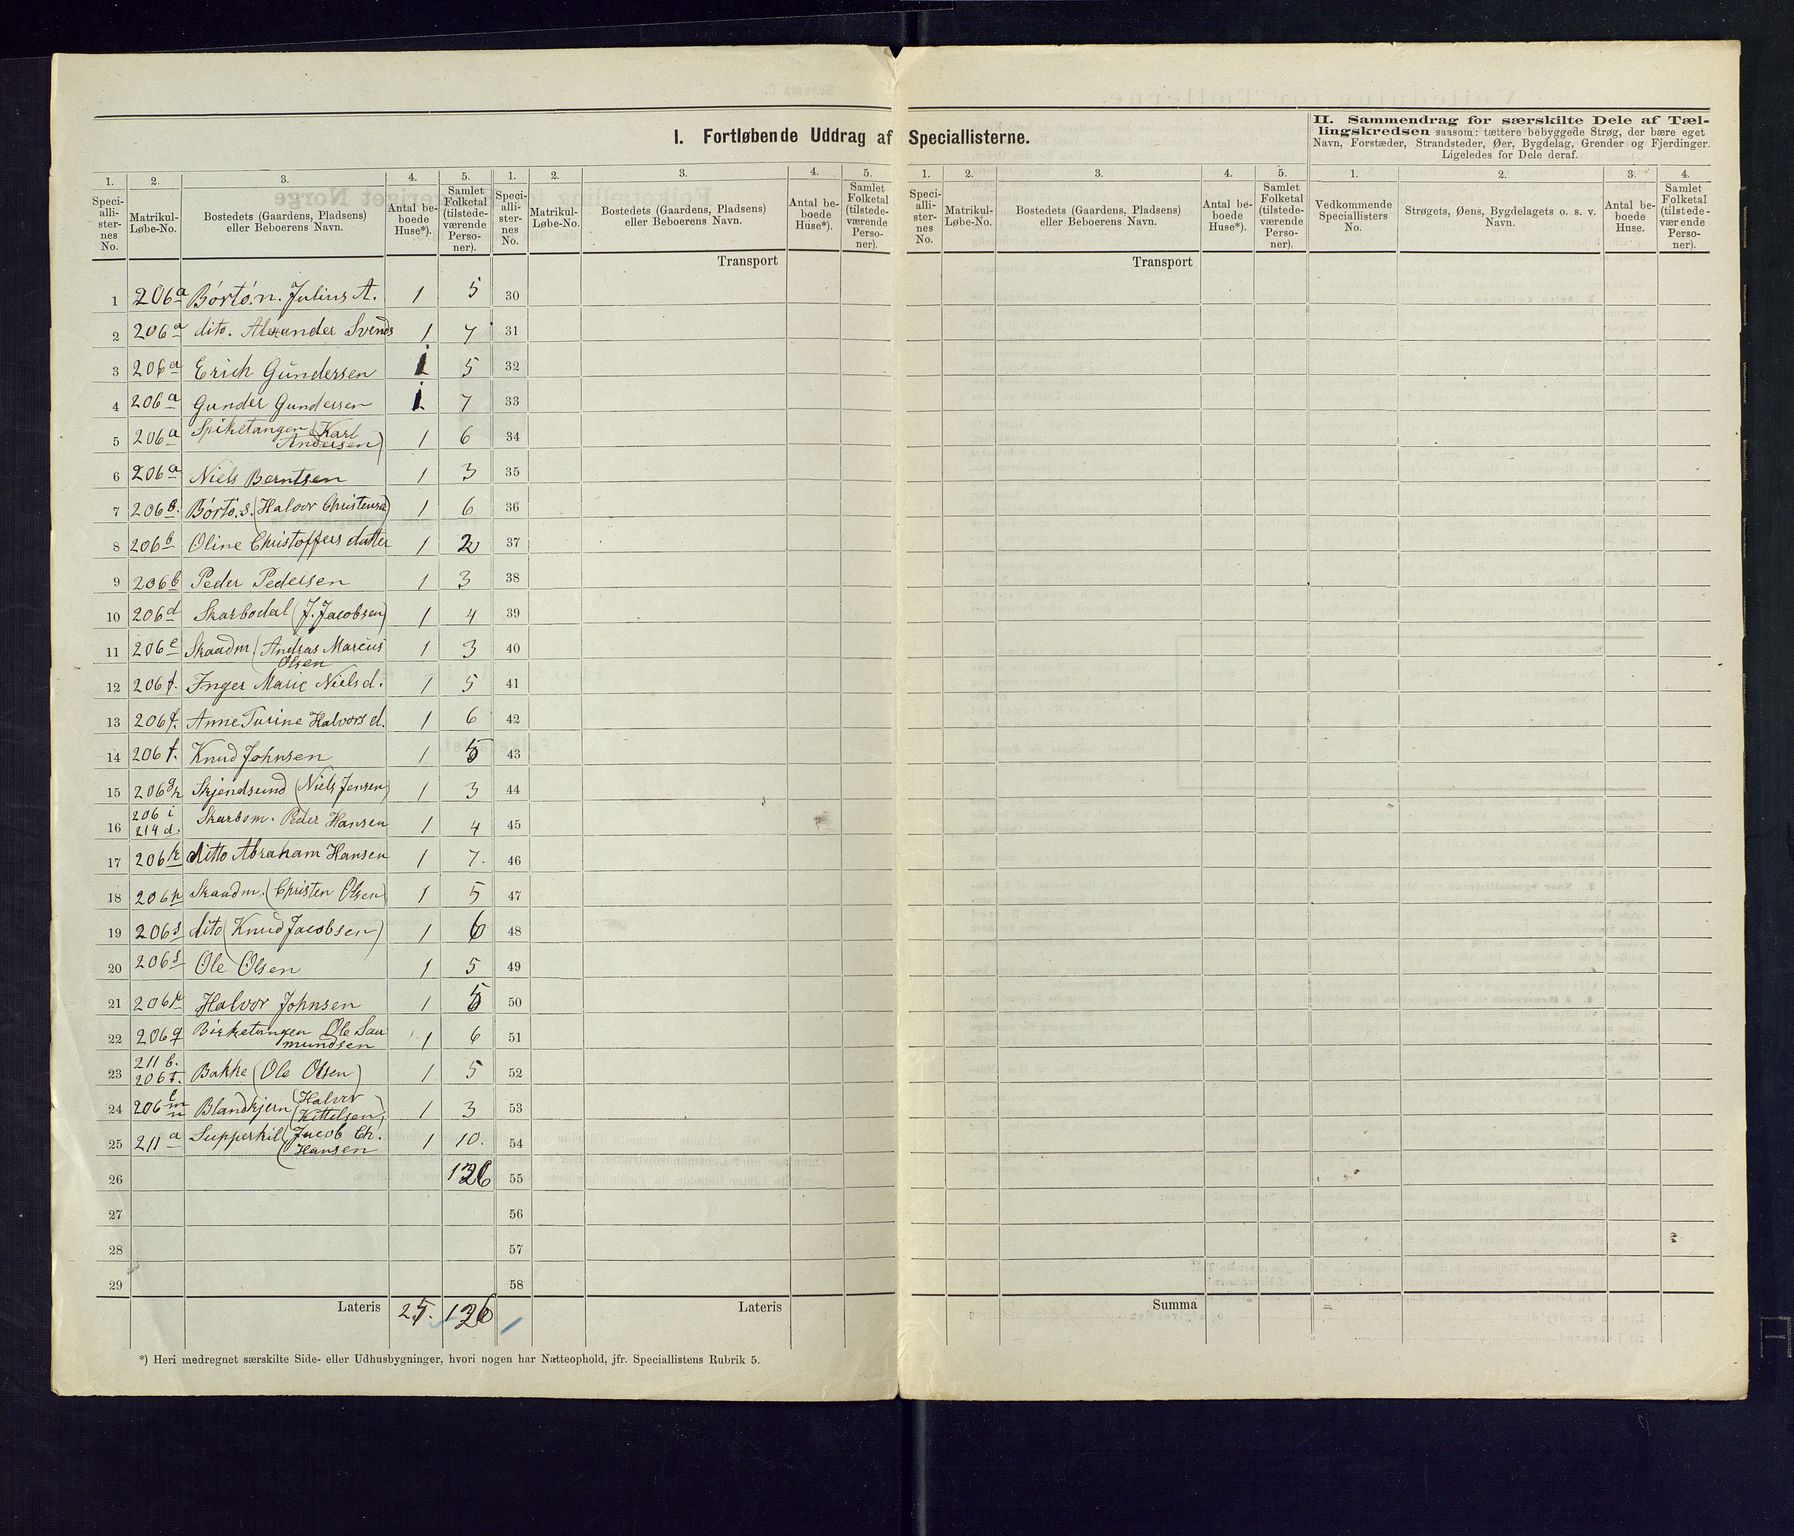 I. Fortløbende Uddrag af Speciallisterne.
II. Sammendrag for særskilte Dele af Tæl-
lingskredsen saasom: tættere bebyggede Strøg, der bære eget
Navn, Forstæder, Strandsteder, Øer, Bygdelag, Grender og Fjerdinger.
Ligeledes for Dele deraf.
1. 2. 3. 4. 5. 1. 2. 3. 4. 5. 1. 2. 3. 4. 5. 1. 2. 3. 4.
Speci-
alli-
ster-
nes
No.
Matrikul-
Løbe-No.
Bostedets (Gaardens, Pladsens)
eller Beboerens Navn.
Antal be-
boede
Huse*).
Samlet
Folketal
(tilstede-
værende
Perso-
ner).
Speci-
alli-
ster-
nes
No.
Matrikul-
Løbe-No.
Bostedets (Gaardens, Pladsens)
eller Beboerens Navn.
Antal be-
boede
Huse*).
Samlet
Folketal
(tilstede-
værende
Perso-
ner).
Speci-
alli-
ster-
nes
No.
Matrikul-
Løbe-No.
Bostedets (Gaardens, Pladsens)
eller Beboerens Navn.
Antal be-
boede
Huse*).
Samlet
Folketal
(tilstede-
værende
Perso-
ner).
Vedkommende
Speciallisters
No.
Strøgets, Øens, Bygdelagets o. s. v.
Navn.
Antal be-
boede
Huse.
Samlet
Folketal
(tilstede-
værende
Perso-
ner).
Transport Transport
1 206a Börtö. n. Julius A. 1 5 30
2 206a dito. Alexander Svends 1 7 31
3 206a Erich Gundersen 1 5 32
4 206a Gunder Gundersen 1 7 33
5 206a Spiketangen (Karl
Andersen) 1 6 34
6 206a Niels Berntsen 1 3 35
7 206b. Börtö. s. (Halvor Christensen) 1 6 36
8 206b Oline Christoffersdatter 1 2 37
9 206b Peder Pedersen 1 3 38
10 206d Skarbodal (J. Jacobsen) 1 4 39
11 206e Skaadm (Andras Marcus
Olsen 1 3 40
12 206f. Inger Marie Nielsd. 1 5 41
13 206f. Anne Turine Halvorsd. 1 6 42
14 206f. Knud Johnsen 1 5 43
15 206gh Skjendsund (Niels Jensen) 1 3 44
16 206 i
214 d. Skarbom. Peder Hansen 1 4 45
17 206k ditto Abraham Hansen 1 7. 46
18 206p Skaadm. (Christen Olsen) 1 5 47
19 206s dito (Knud Jacobsen) 1 6 48
20 206s Ole Olsen 1 5 49
21 206 Halvor Johnsen 1 5 50
22 206q Birketangen Ole Saa
mundsen 1 6 51
23 211 b.
206 t. Bakke (Ole Olsen) 1 5 52
24 206 l m n Blandkjern (Halvor
Kittelsen) 1 3 53
25 211 a Supperkil (Jacob Ch.
Hansen 1 10. 54
26 126 55
27 56
28 57
29 58
Lateris 25. 126 Lateris Summa
*) Heri medregnet særskilte Side- eller Udhusbygninger, hvori nogen har Natteophold, jfr. Speciallistens Rubrik 5.